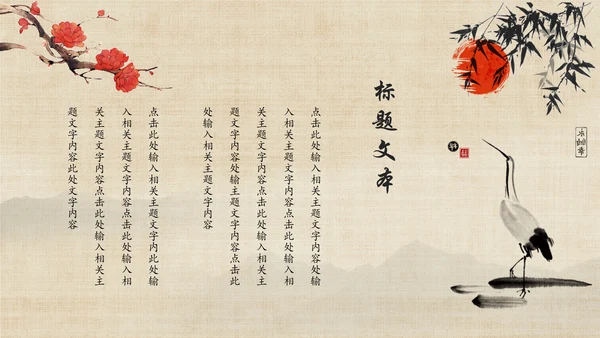 标题文本
点击此处输入相关主题文字内容处输
入相关主题文字内容点击此处输入相
关主题文字内容点击此处输入相关主
题文字内容处输主题文字内容点击此
处输入相关主题文字内容
点击此处输入相关主题文字内此处输
入相关主题文字内容点击此处输入相
关主题文字内容点击此处输入相关主
题文字内容此处文字内容